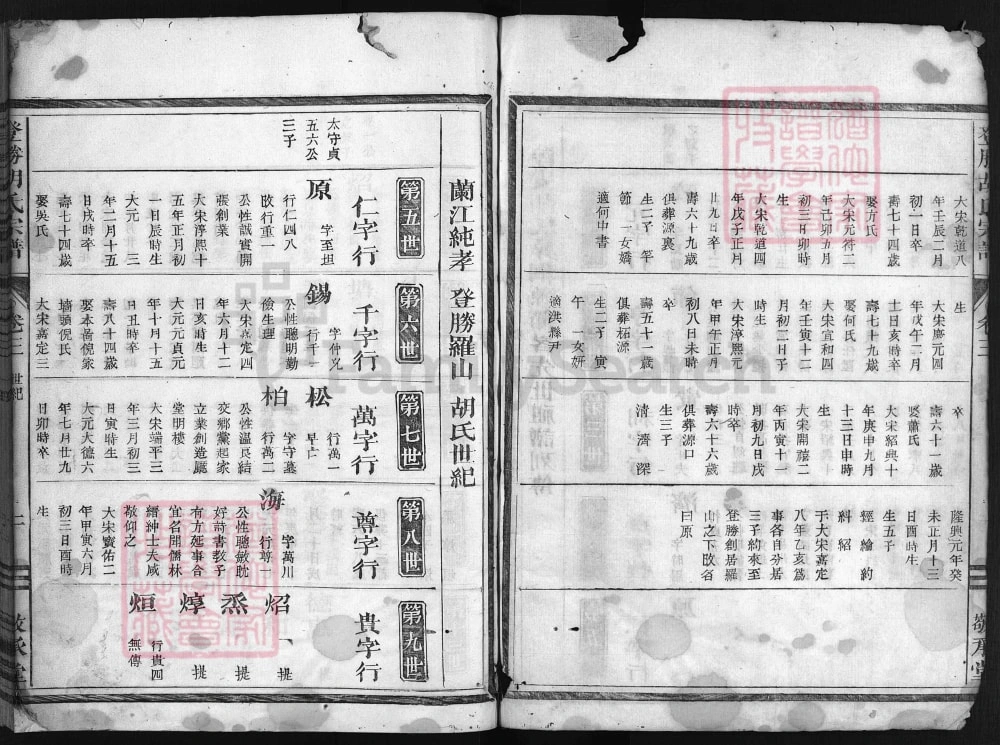 登勝胡氏宗譜 卷三 敬承堂
大宋乾道八
年壬辰二月
初一日卒
壽七十四歲
娶方氏
大宋元符二
年己卯五月
初三日卯時
生
大宋乾道四
年戊子正月
廿九日卒
壽六十九歲
俱葬源裏
生二子 竿
節 一女嬌
適何中書
生
大宋慶元四
年戊午二月
十二日亥時卒
壽七十九歲
娶何氏
大宋宣和四
年壬寅十二
月初二日子
時生
大宋淳熙元
年甲午正月
初八日未時
卒
壽五十二歲
俱葬祏源
生二子 寅
午 一女妍
適洪縣尹
卒
壽六十一歲
娶蕭氏
大宋紹興十
年庚申九月
十三日申時
生
大宋開禧二
年丙寅十一
月初九日戌
時卒
壽六十六歲
俱葬源口
生三子
清 濟 深
隆興元年癸
未正月十三
日酉時生
生五子
經 綸 約
糾 紹
于大宋嘉定
八年乙亥爲
事各自分居
三子約來至
登勝創居羅
山之下故谷
曰原
蘭江純孝 登勝羅山 胡氏世紀
第五世 第六世 第七世 第八世 第九世
仁字行 千字行 萬字行 尊字行 貴字行
太守貞
五六公
三子
原 字至坦
行仁四八
改行重一
公性誠實開
張創業
大宋淳熙十
五年正月初
一日辰時生
大元
年二月十五
日戌時卒
壽七十四歲
娶吳氏
錫 字仲兄
行千一
公性聰明勤
儉生理
大宋嘉定四
年六月十二
日亥時生
大元元貞元
年十月十五
日卒
壽八十四歲
娶本邑倪家
墻頭倪氏
大宋嘉定三
松 行萬一
早亡
柏 字守墓
行萬二
公性溫良結
交鄉黨起家
立業創造廳
堂門樓
大宋端平三
年三月初三
日寅時生
大元大德六
年七月廿九
日卯時卒
海 字萬川
行尊
公性聰敏耽
好詩書教子
有方延事合
宜名聞儒林
縉紳士夫咸
敬仰之
大宋寶佑二
年甲寅六月
初三日酉時
生
炤 一提
烝 提
焞 提
烜 行貴四
無傳
登勝胡氏宗譜 卷三 世紀 二 敬承堂
FamilySearch